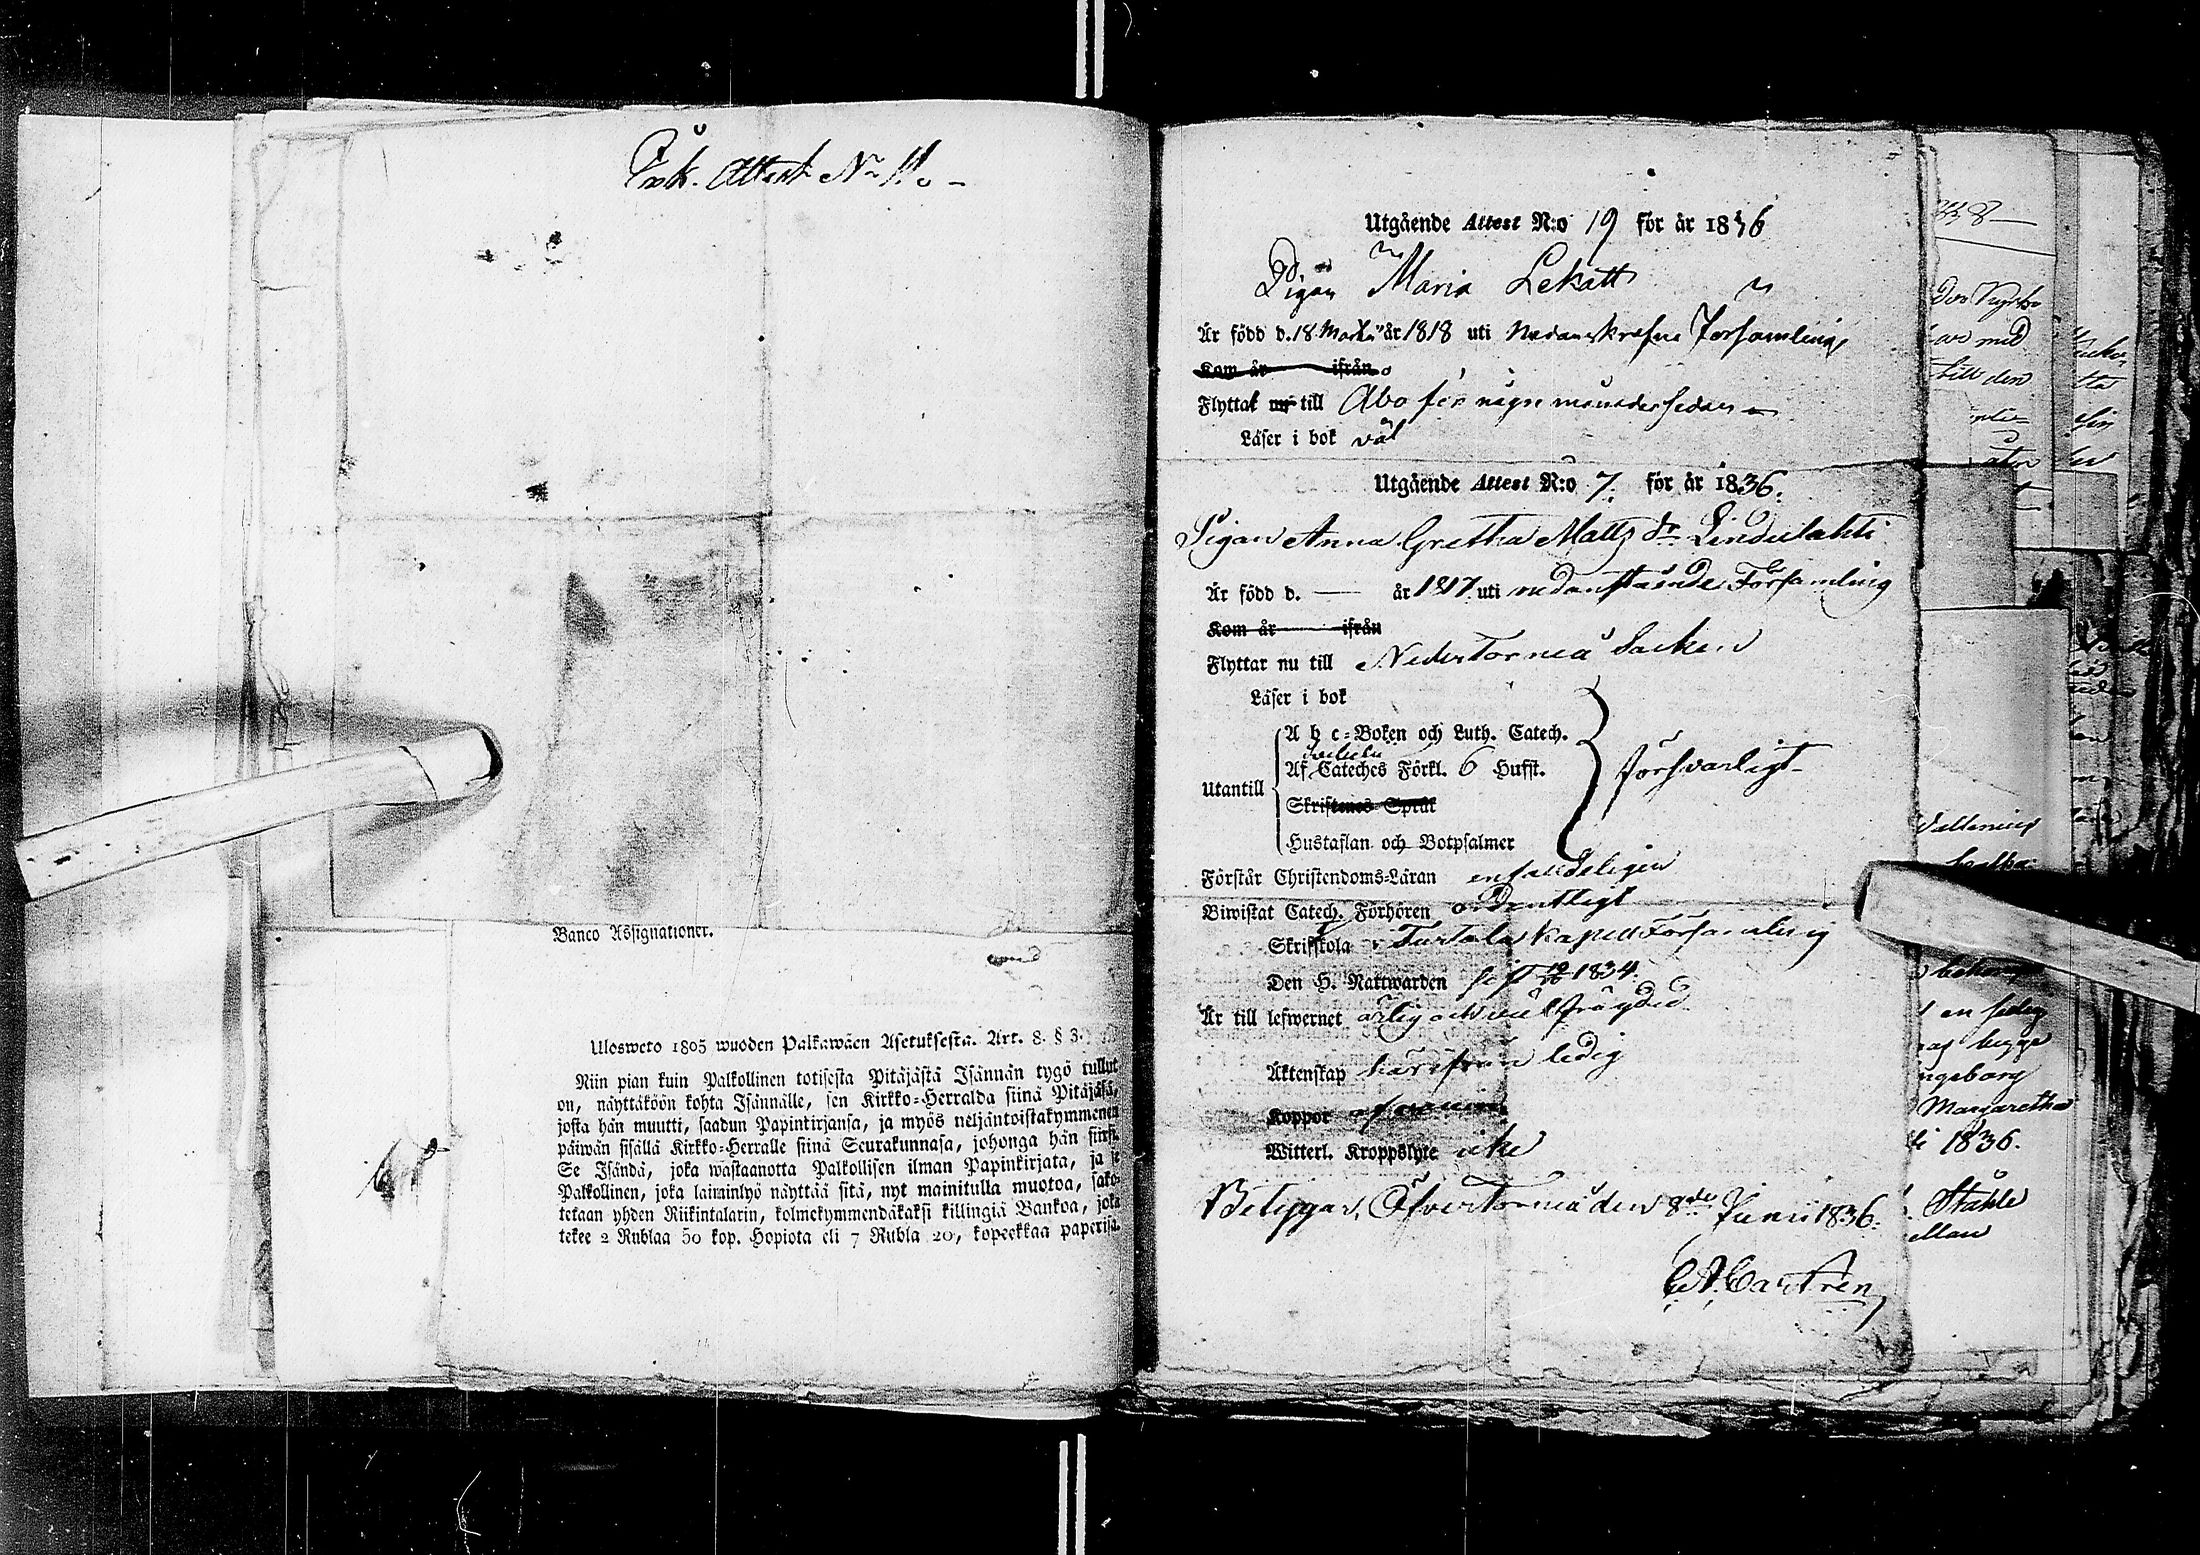 Ink. Attest No 11.
Banco Assignationer.
Ulosweto 1805 wuoden Palkawäen Asetuksesta. Art. 8. § 3.
Niin pian kuin Palkollinen totisesta Pitäjästä Isännän tygö tullut
on, näyttäköön kohta Isännälle, sen Kirkko-Herralda siinä Pitäjäsä,
josta hän muutti, saadun Papinkirjansa, ja myös neljäntoistakymmenen
päiwän sisällä Kirkko-Herralle siinä Seurakunnasa, johonga hän siirsi.
Se Isändä, joka wastaanotta Palkollisen ilman Papinkirjata, ja se
Palkollinen, joka laiminlyö näyttää sitä, nyt mainitulla muotoa, sako-
tetaan yhden Riikintalarin, kolmekymmendäkaksi killingiä Bankoa, joka
tekee 2 Rublaa 50 kop. Hopiota eli 7 Rubla 20, kopeekkaa paperisa.
Utgående Attest N:o 19 för år 1836
Pigan Maria Lekatt
Är född d. 18 Martii år 1818 uti Nedanskrefne Församling
Kom år ifrån
Flyttat till Åbo för några månader sedan
Läser i bok väl
Utgående Attest N:o 7. för år 1836.
Pigan Anna Gretha Matts dr Lindulahti
Är född d. — år 1817 uti nedanstående Församling
Kom år ifrån
Flyttar nu till NederTorneå Socken
Läser i bok
Utantill
A b c-Boken och Luth. Catech.
Af Cateches Förkl. 6 Hufst.
Skriftenes Språk
Hustaflan och Botpsalmer
försvarligt
Förstår Christendoms-Läran enfaldeligen
Biwistat Catech. Förhören ordentligt
Skriftskola i Turtola Kapell Församling
Den H. Nattwarden 1834.
Är till lefwernet ärlig och väl frägdad
Äktenskap härifrån ledig
Koppor
Witterl. Kroppslyte icke
Betygar, ÖfverTorneå den 8de Junii 1836.
C. A. Castrén
Margaretha
1836.
Ståhle